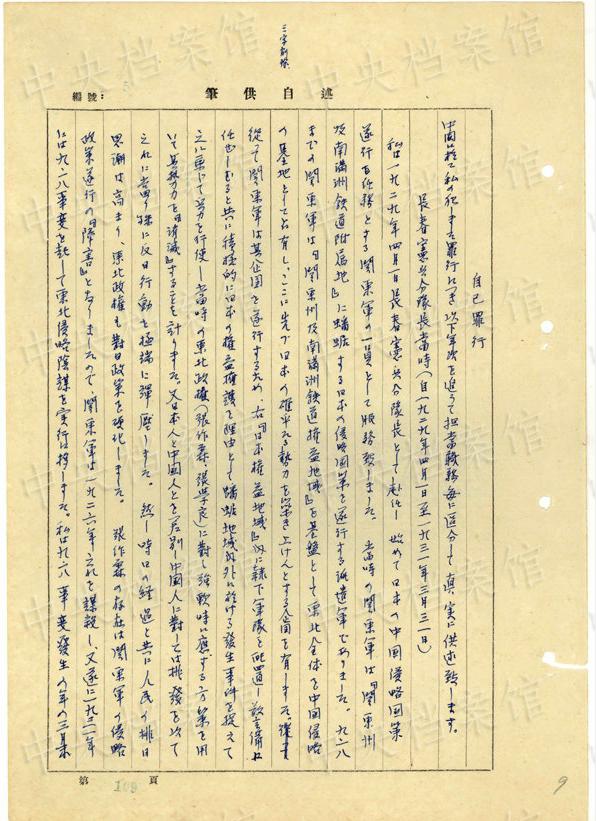 三字削除
編號：
筆供自述
自己罪行
中国に於て私の犯しました罪行につき以下年次を追うて担当職務毎に区分して真実に供述致します。
長春憲兵分隊長当時（自一九二九年四月一日至一九三一年三月三一日）
私は一九二九年四月一日長春憲兵分隊長として赴任し始めて日本の中国侵略国策
遂行を任務とする関東軍の一員として服務致しました。当時の関東軍は『関東州
及南満洲鉄道附属地』に蟠踞する日本の侵略国策を遂行する派遣軍でありました。九一八
までの関東軍は『関東州及南満洲鉄道権益地域』を基盤として東北全体を中国侵略
の基地として占有し、ここに先ず日本の確乎たる勢力を築き上げんとする企図を有しました。
従て関東軍は其企図を遂行するため、右『日本権益地域』内に隷下軍隊を配置し
せしむると共に積極的に日本の権益擁護を理由として蟠踞地域内外に於ける発生事件を捉えて
之に乗じて労力を行使し当時の東北政権（張作霖、張学良）に対し強軟時に応ずる方策を用
いて其勢力を『消滅』することを計りました。又日本人と中国人とを差別し中国人に対しては挑発を以て
之れに当り特に反日行動を極端に弾圧しました。然し時日の経過と共に人民の排日
思潮は高まり、東北政権も対日政策を強化しました。張作霖の存在は関東軍の侵略
政策遂行の『障害』となりましたので、関東軍は一九二六年之れを謀殺し、又遂に一九三一年
には九一八事変を起して東北侵略陰謀を実行に移しました。私は九一八事変発生の年の三月末
第 109 頁
9
中央档案馆